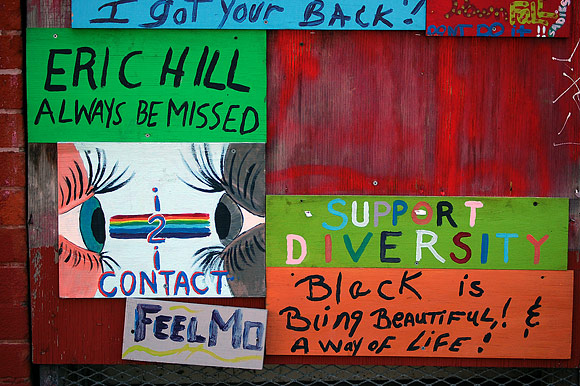 I GOT YOUR BACK!
DON'T DO IT!!
ERIC HILL
ALWAYS BE MISSED
i
2
i
CONTACT
FEEL MO
SUPPORT
DIVERSITY
Black is
Biing BEAUTIFUL,! &
A WAY OF LIFE!